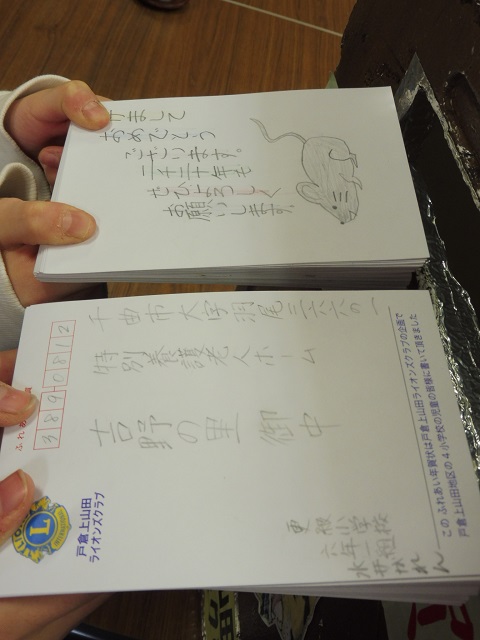 けまして
おめでとう
ございます。
二千二十年も
ぜひよろしく
お願いします。
ふれあ
3890812
千曲市大字羽尾三六六の一
特別養護老人ホーム
吉野の里 御中
更級小学校
六年一組
れん
このふれあい年賀状は戸倉上山田ライオンズクラブの企画で
戸倉上山田地区の4小学校の児童の皆様に書いて頂きました
L
戸倉上山田
ライオンズクラブ